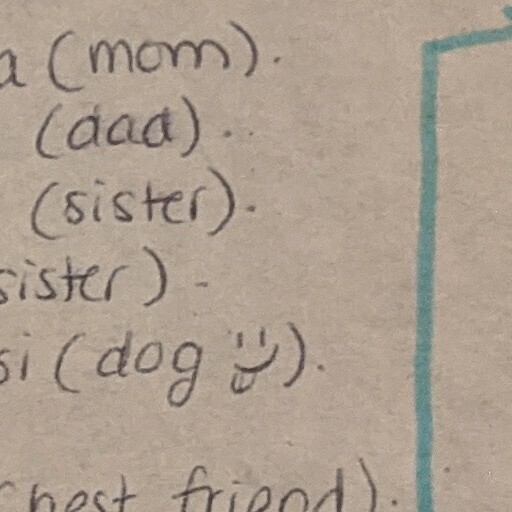 a (mom).
(dad)..
(sister).
sister).
si (dog ).
(best friend).